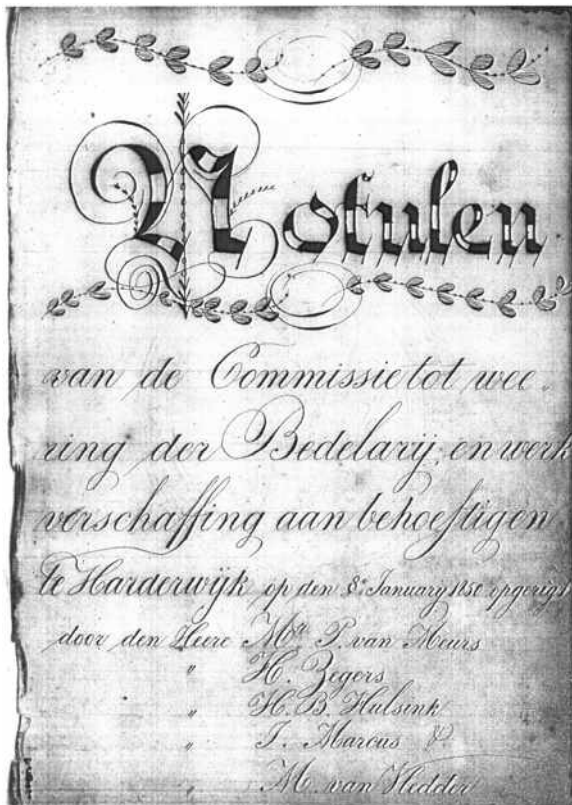 Notulen
van de Commissie tot wee-
ring der Bedelarij, en werk
verschaffing aan behoeftigen
te Harderwijk op den 8e January 1850 opgerigt
door den Heere Mr P. van Meurs
" H. Zegers
" H. B. Hulsink
" J. Marcus &
" M. van Vledder